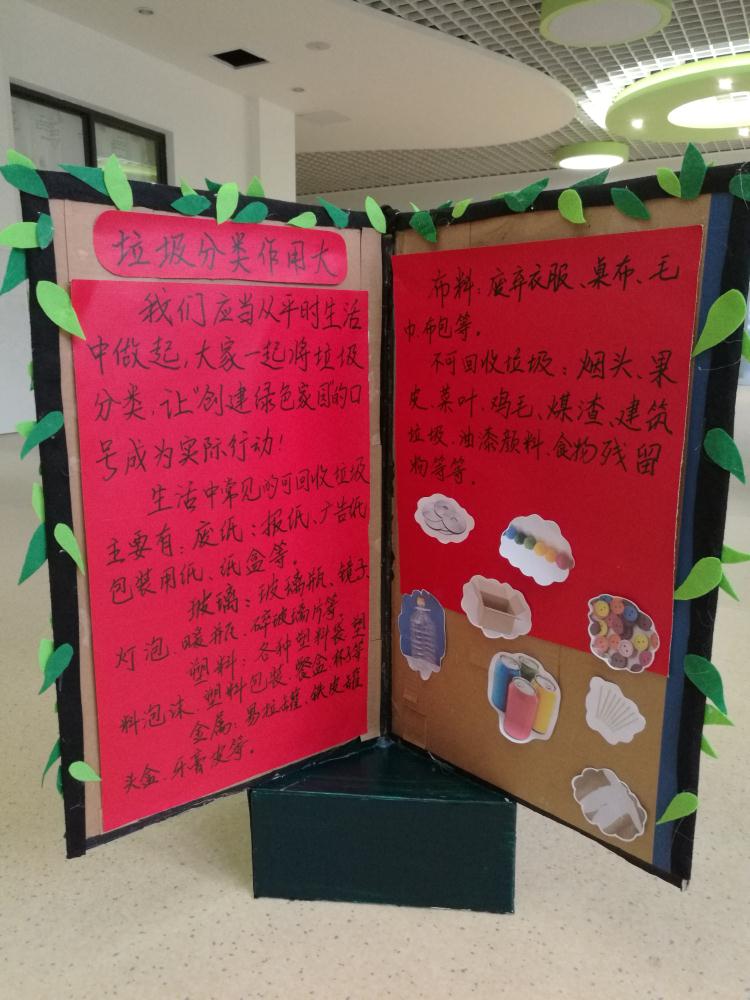 垃圾分类作用大
我们应当从平时生活
中做起,大家一起将垃圾
分类,让“创建绿色家园”的口
号成为实际行动!
生活中常见的可回收垃圾
主要有:废纸:报纸、广告纸
包装用纸、纸盒等。
玻璃:玻璃瓶、镜子、
灯泡、暖瓶、碎玻璃片等。
塑料:各种塑料袋、塑
料泡沫、塑料包装、餐盒杯子等
金属:易拉罐、铁皮罐
头盒、牙膏皮等。
布料:废弃衣服、桌布、毛
巾、布包等。
不可回收垃圾:烟头、果
皮、菜叶、鸡毛、煤渣、建筑
垃圾、油漆颜料、食物残留
物等等。